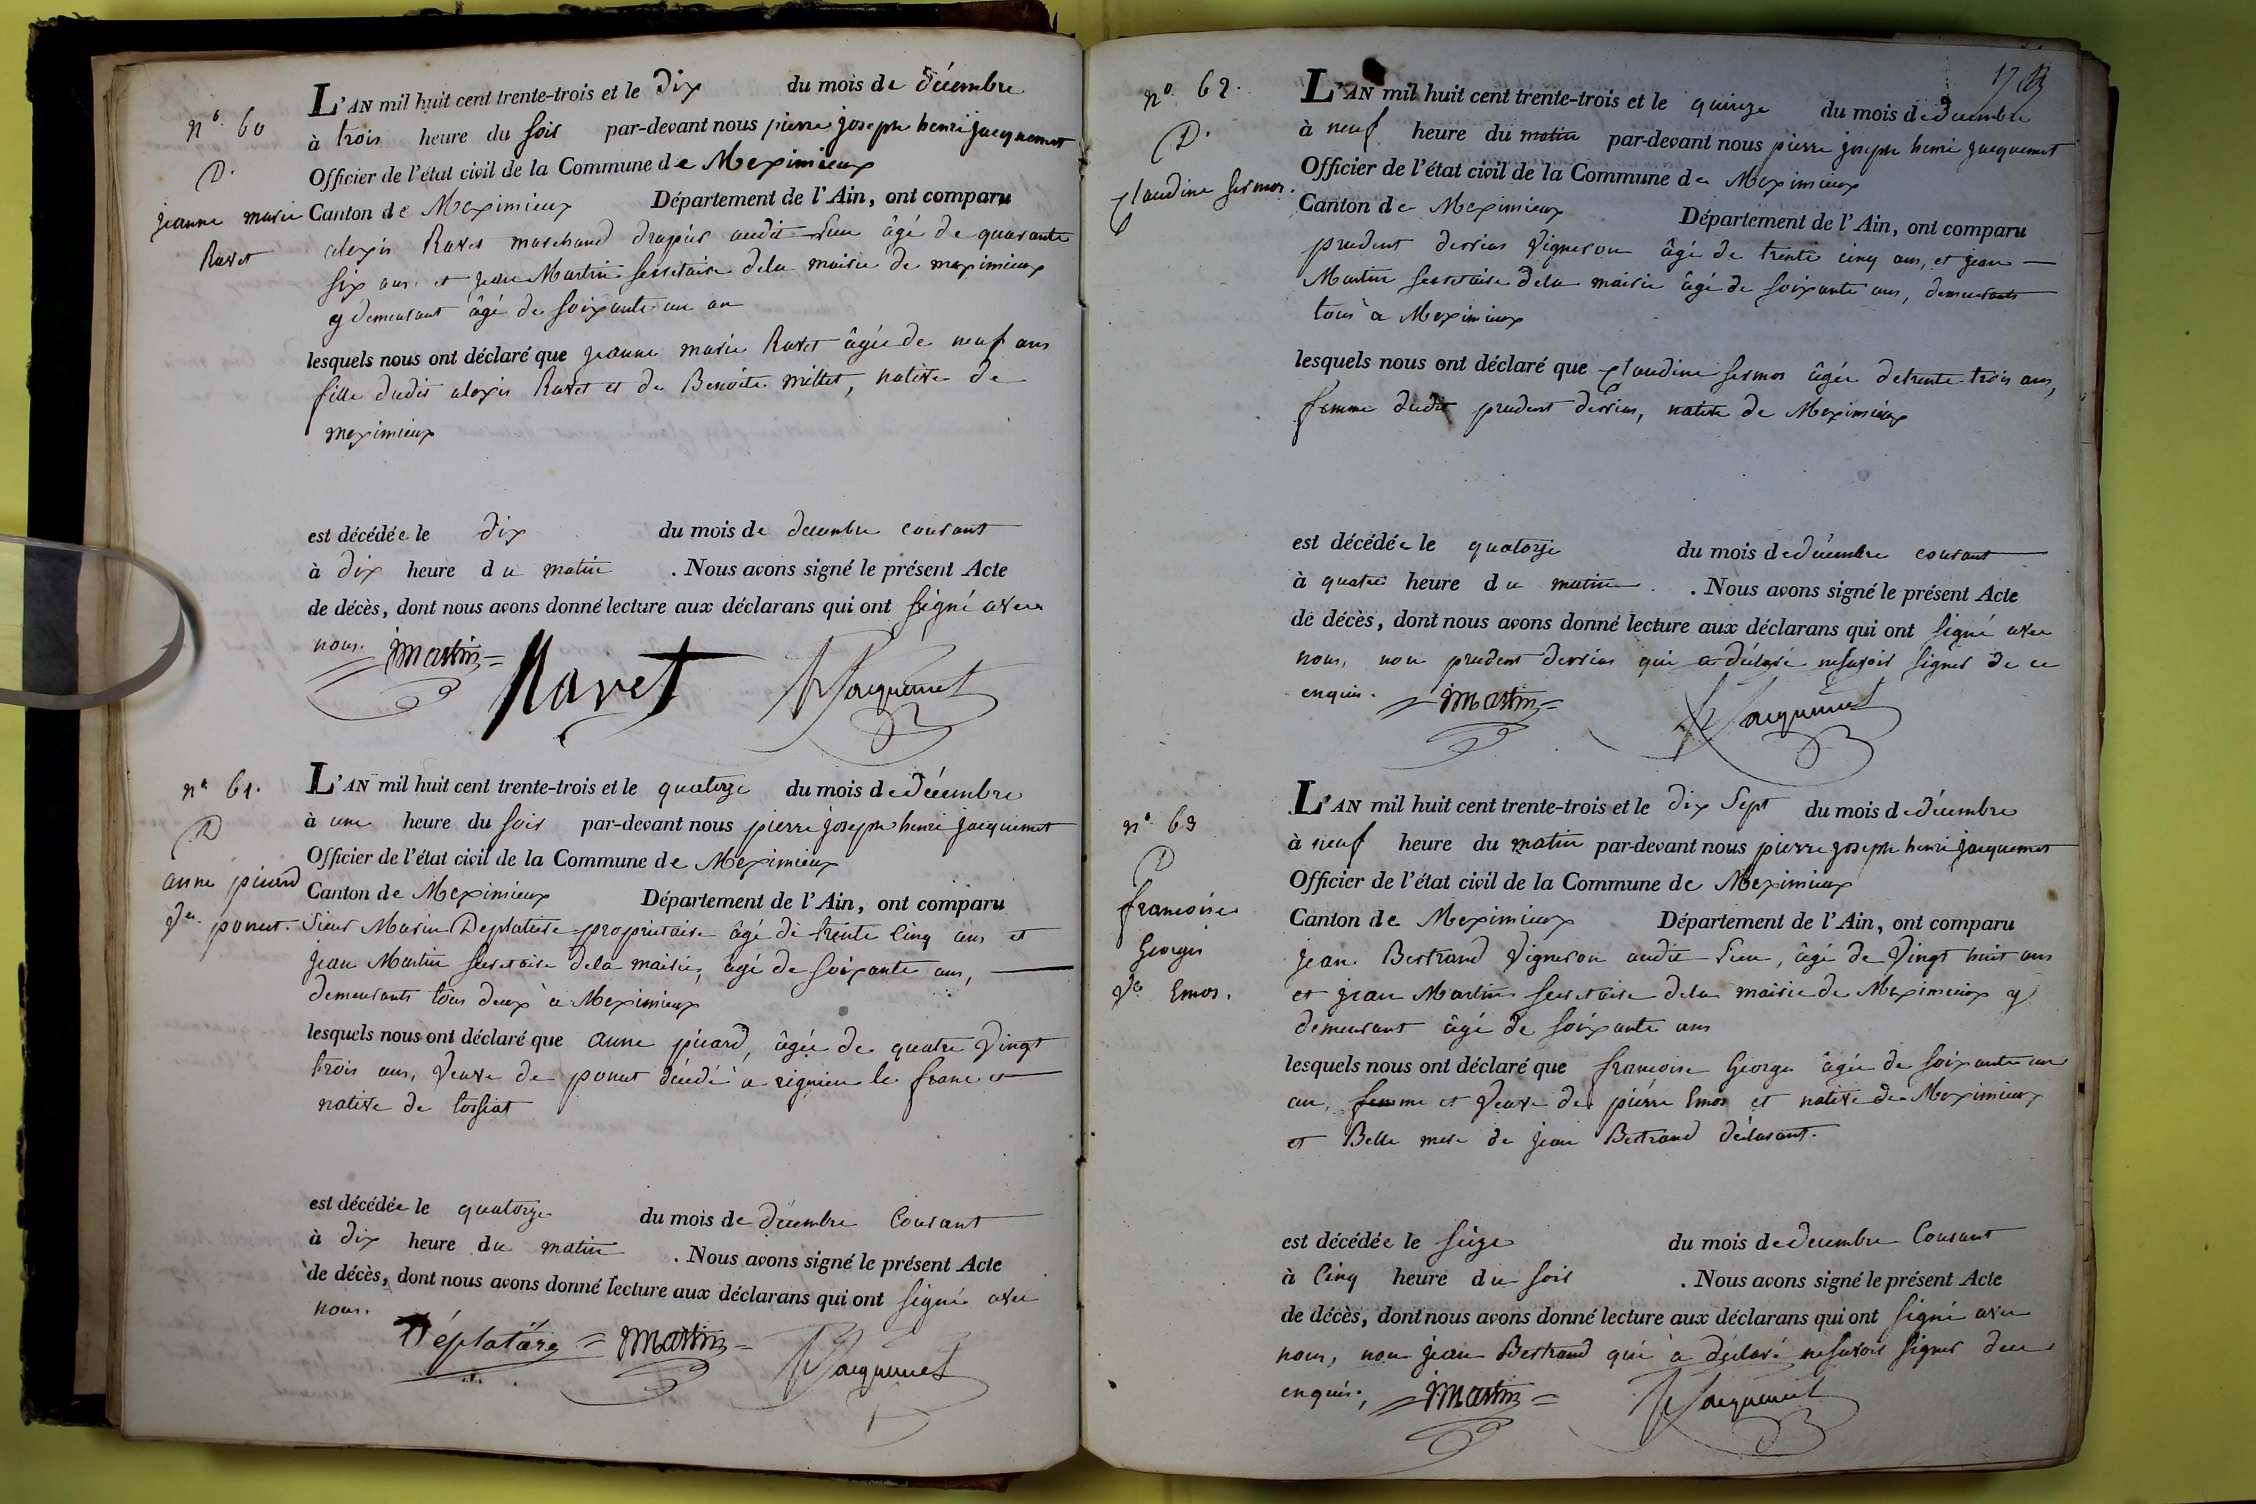 n° 60
D.
jeanne marie
Ravet
L'AN mil huit cent trente-trois et le dix du mois de décembre
à trois heure du soir par-devant nous pierre joseph henri jacquemet
Officier de l'état civil de la Commune de Meximieux
Canton de Meximieux Département de l'Ain, ont comparu
alexis Ravet marchand drapier audit lieu âgé de quarante
six ans et jean Martin secretaire dela mairie de meximieux
y demeurant âgé de soixante un an
lesquels nous ont déclaré que jeanne marie Ravet âgée de neuf ans
fille dudit alexis Ravet et de Benoite millet, native de
meximieux
est décédée le dix du mois de decembre courant
à dix heure du matin . Nous avons signé le présent Acte
de décès, dont nous avons donné lecture aux déclarans qui ont signé avec
nous. jmartin Ravet Jacquemet
n° 61.
D
anne picard
Ve ponut.
L'AN mil huit cent trente-trois et le quatorze du mois de décembre
à une heure du soir par-devant nous pierre joseph henri jacquemet
Officier de l'état civil de la Commune de Meximieux
Canton de Meximieux Département de l'Ain, ont comparu
Sieur Marin Deplature proprietaire âgé de trente cinq ans et
jean Martin secretaire dela mairie, âgé de soixante ans,
demeurants tous deux à Meximieux
lesquels nous ont déclaré que anne picard, âgée de quatre vingt
trois ans, veuve de ponut décédé à rignieu le franc et
native de tossiat
est décédée le quatorze du mois de décembre courant
à dix heure du matin . Nous avons signé le présent Acte
de décès, dont nous avons donné lecture aux déclarans qui ont signé avec
nous.
Déplature jmartin Jacquemet
17
n° 62.
D.
Claudine sermor.
L'AN mil huit cent trente-trois et le quinze du mois de décembre
à neuf heure du matin par-devant nous pierre joseph henri jacquemet
Officier de l'état civil de la Commune de Meximieux
Canton de Meximieux Département de l'Ain, ont comparu
prudent derrias vigneron âgé de trente cinq ans, et jean
Martin secretaire dela mairie âgé de soixante ans, demeurants
tous à Meximieux
lesquels nous ont déclaré que Claudine sermor âgée de trente trois ans,
femme dudit prudent derrias, native de Meximieux
est décédée le quatorze du mois de décembre courant
à quatre heure du matin . Nous avons signé le présent Acte
de décès, dont nous avons donné lecture aux déclarans qui ont signé avec
nous, non prudent derrias qui a déclaré ne savoir signer de ce
enquis. jmartin Jacquemet
n° 63
D
francoise
Georges
Ve Emor.
L'AN mil huit cent trente-trois et le dix sept du mois de décembre
à neuf heure du matin par-devant nous pierre joseph henri jacquemet
Officier de l'état civil de la Commune de Meximieux
Canton de Meximieux Département de l'Ain, ont comparu
jean Bertrand vigneron audit lieu, âgé de vingt huit ans
et jean Martin secretaire dela mairie de Meximieux y
demeurant âgé de soixante ans
lesquels nous ont déclaré que francoise George âgée de soixante un
an, femme et veuve de pierre Emor et native de Meximieux
et Belle mere de jean Bertrand déclarant.
est décédée le seize du mois de decembre courant
à cinq heure du soir . Nous avons signé le présent Acte
de décès, dont nous avons donné lecture aux déclarans qui ont signé avec
nous, non jean Bertrand qui à déclaré ne savoir signer de ce
enquis. jmartin Jacquemet